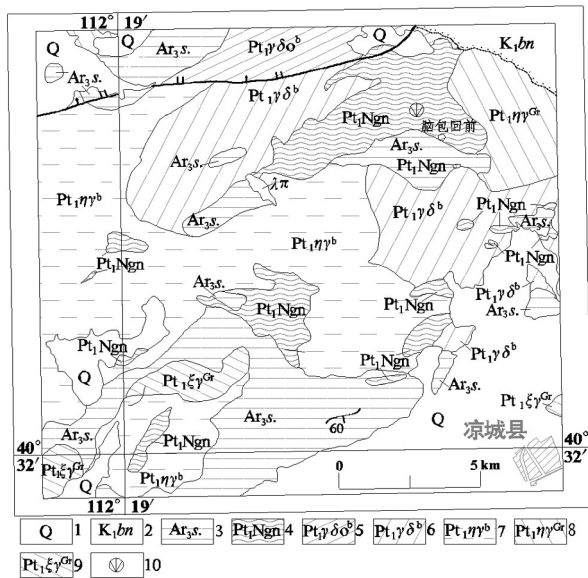 112° 19′
Q
Q
Pt₁γδoᵇ
Q
K₁bn
Ar₃s.
Ar₃s.
Pt₁γδᵇ
Pt₁ηγᴳʳ
Pt₁Ngn
脑包回前
Ar₃s.
Ar₃s.
Pt₁Ngn
λπ
Pt₁ηγᵇ
Pt₁γδᵇ
Pt₁Ngn
Ar₃s.
Ar₃s.
Pt₁ηγᵇ
Pt₁Ngn
Pt₁Ngn
Ar₃s.
Pt₁γδᵇ
Pt₁Ngn
Ar₃s.
Ar₃s.
Pt₁Ngn
Pt₁γδᵇ
Pt₁Ngn
Q
Pt₁ξγᴳʳ
Ar₃s.
Pt₁ξγᴳʳ
Ar₃s.
Ar₃s.
60
Q
凉城县
40° 32′
Pt₁Ngn
40° 32′
Pt₁ξγᴳʳ
Pt₁ηγᵇ
0 5 km
Q
112° 19′
Q 1 K₁bn 2 Ar₃s. 3 Pt₁Ngn 4 Pt₁γδoᵇ 5 Pt₁γδᵇ 6 Pt₁ηγᵇ 7 Pt₁ηγᴳʳ 8
Pt₁ξγᴳʳ 9 10